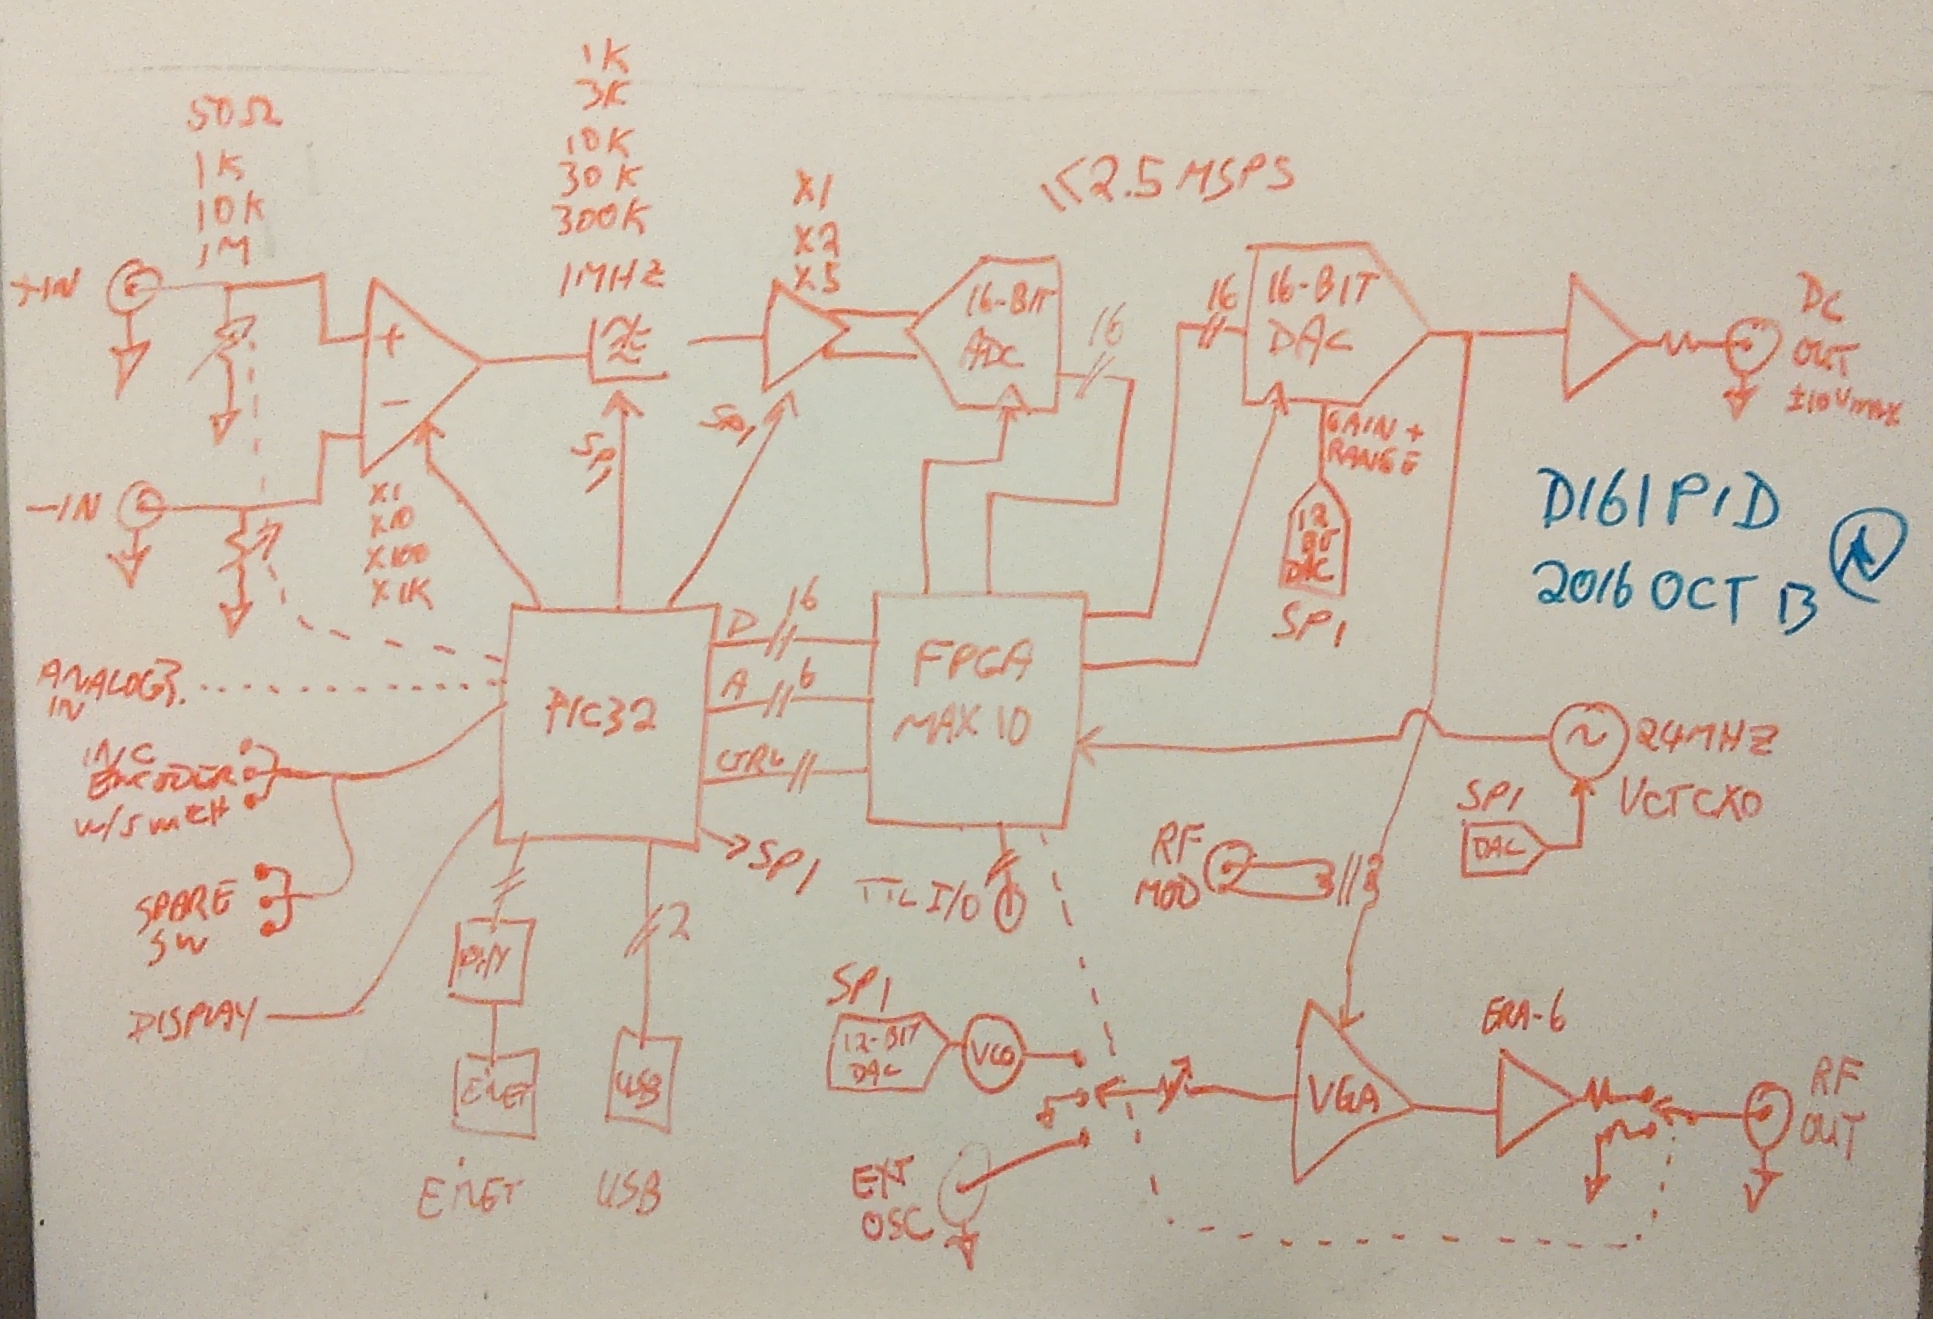 50Ω
1K
10K
1M
1K
3K
10K
30K
300K
1MHZ
X1
X2
X5
≤2.5 MSPS
+IN
+
-
-IN
X1
X10
X100
X1K
SPI
SPI
16-BIT
ADC
16
16
16-BIT
DAC
GAIN +
RANGE
12
BIT
DAC
SPI
DC
OUT
±10Vmax
DIGIPID
2016 OCT 13
ANALOG
IN
INC
ENCODER
W/SWITCH
SPARE
SW
DISPLAY
PIC32
D
16
A
6
CTRL
SPI
FPGA
MAX 10
24MHZ
VCTCXO
SPI
DAC
PHY
E'NET
E'NET
2
USB
USB
TTL I/O
RF
MOD
SPI
12-BIT
DAC
VCO
EXT
OSC
VGA
ERA-6
RF
OUT